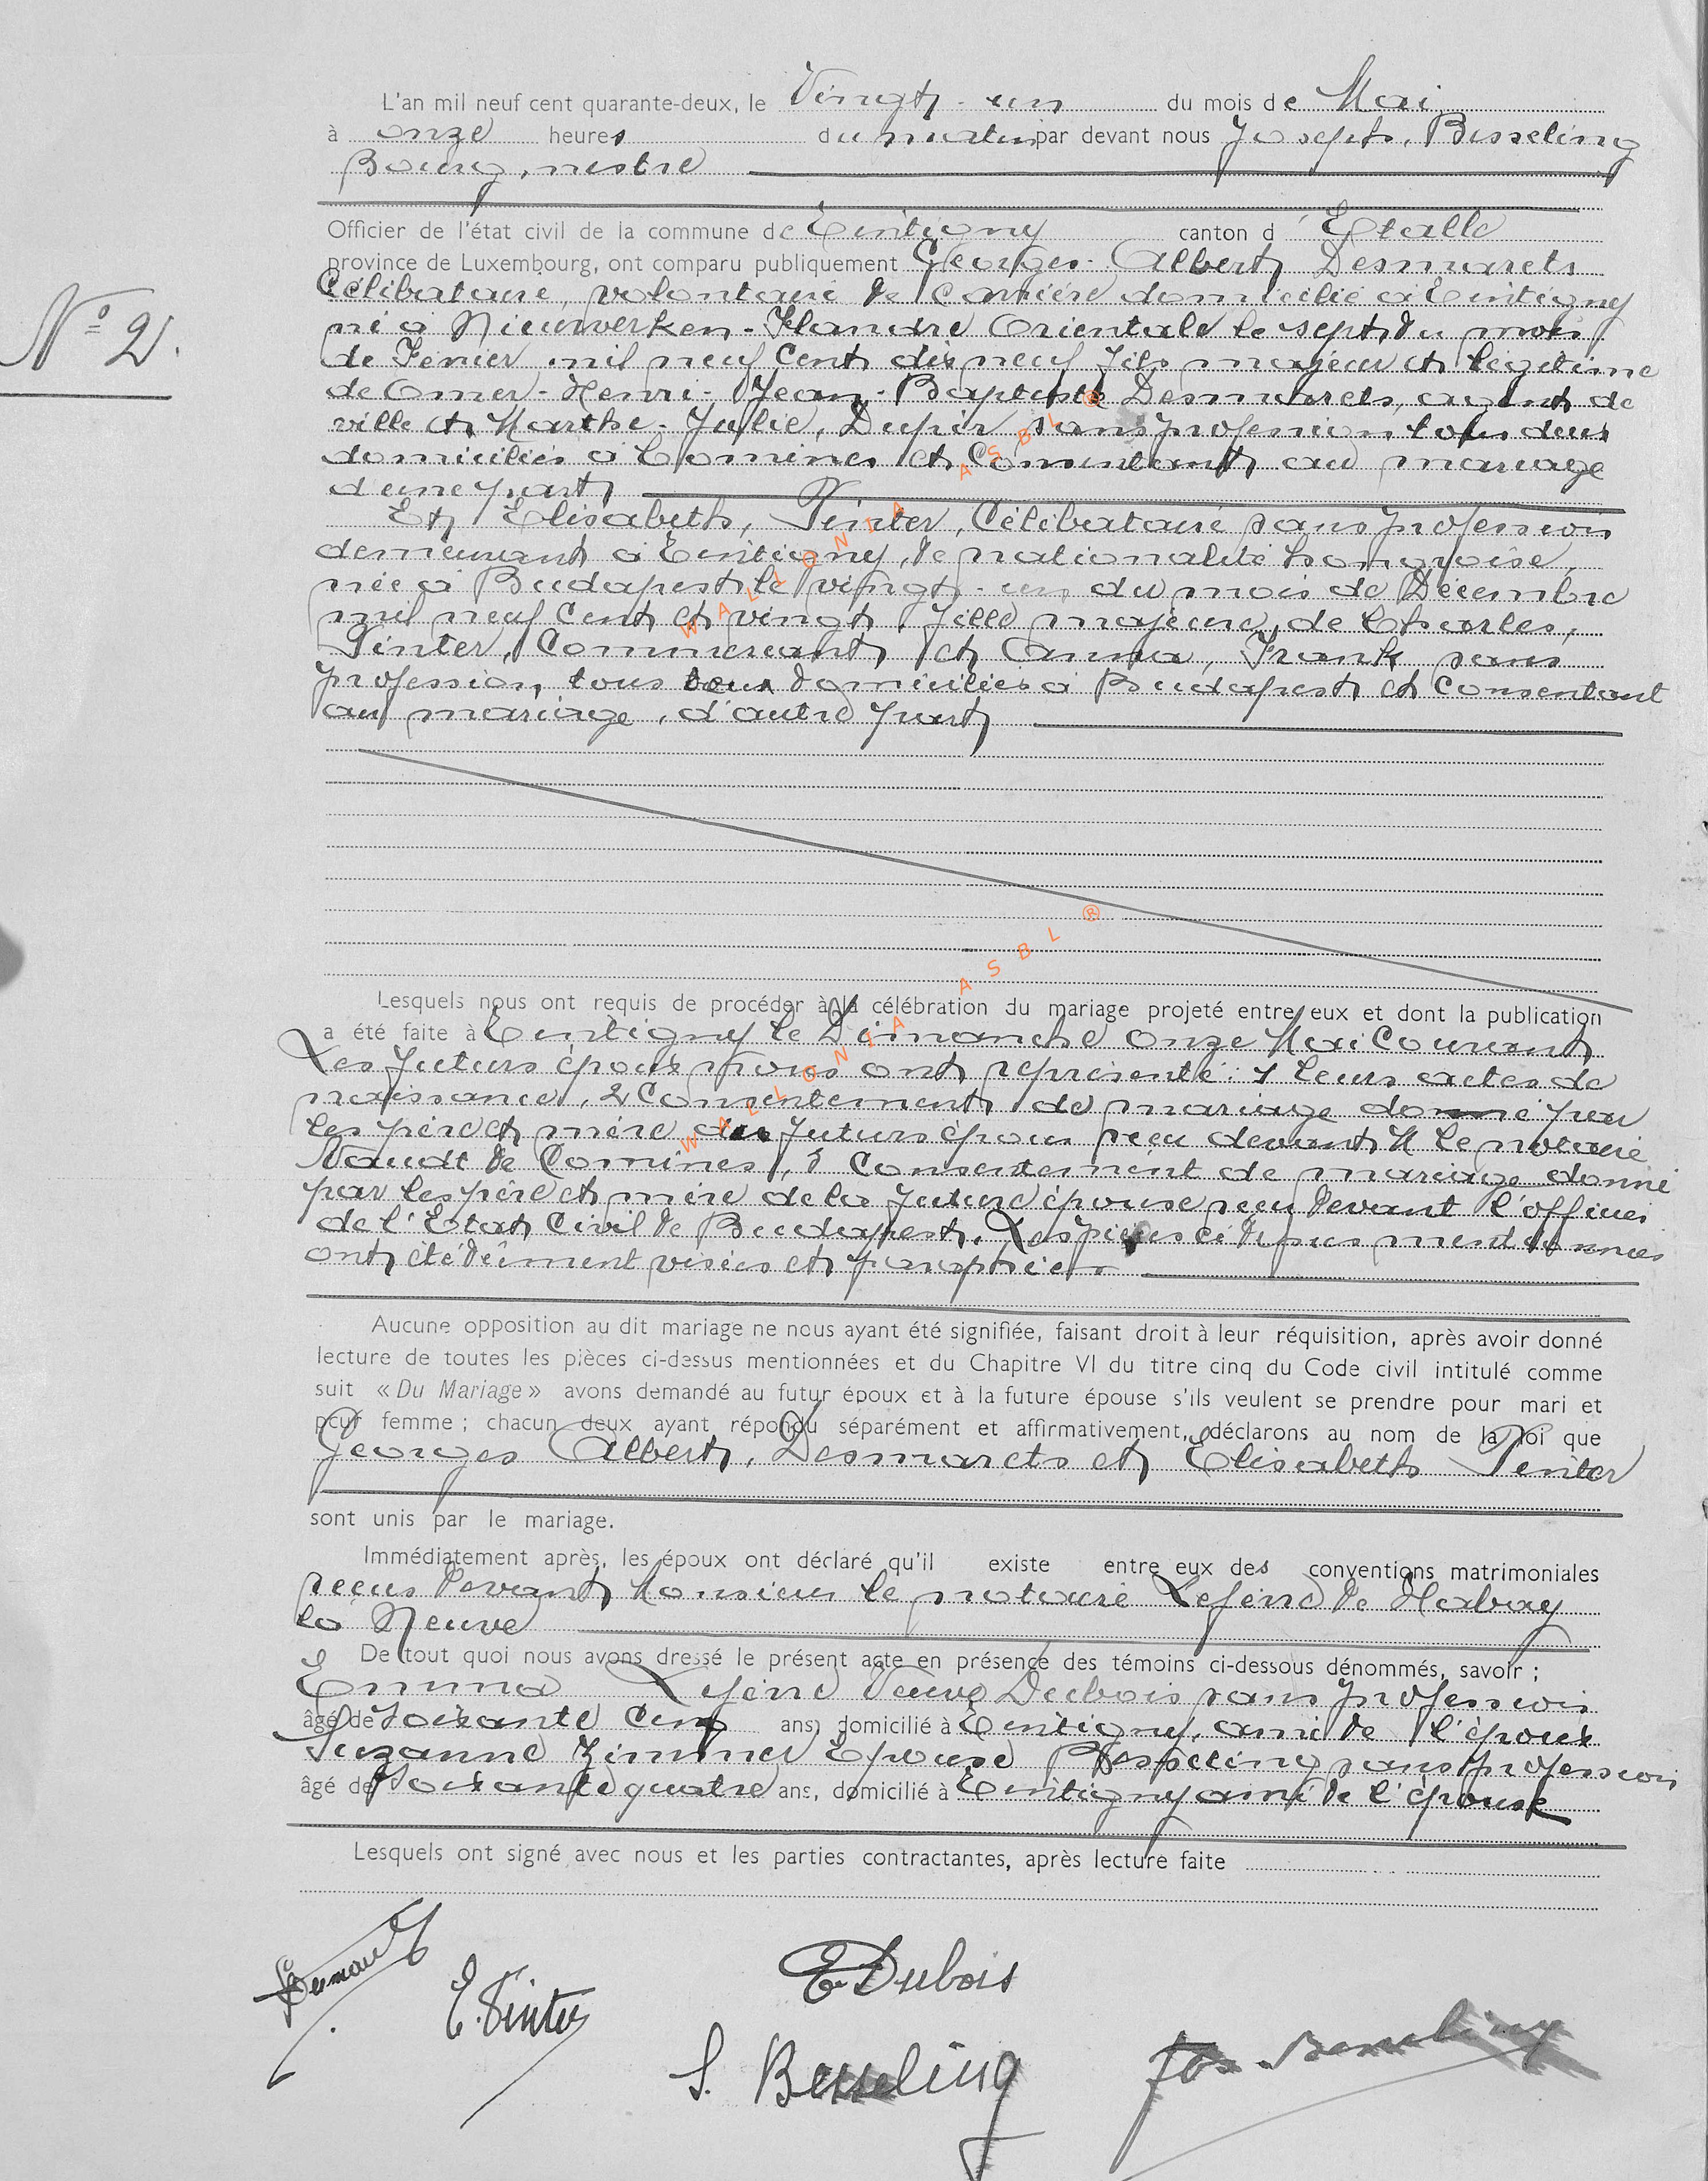 L'an mil neuf cent quarante-deux, le Vingt-un du mois de Mai
à onze heures du matin par devant nous Joseph, Bisseling
Bourgmestre
Officier de l'état civil de la commune de Tintigny canton d'Etalle
province de Luxembourg, ont comparu publiquement Georges-Albert Desmarets
Célibataire, volontaire de Carrière domicilié à Tintigny
N° 2.
né à Nieuwerken-Flandre Orientale le sept du mois
de Fevrier mil neuf cent dix neuf fils majeur et légitime
de Omer-Henri-Jean-Baptiste Desmarets, agent de
ville et Marthe-Julie, Dupir sans profession tous deux
domiciliés à Comines et Consentant au mariage
d'une part
Et Elisabeth, Pinter, Célibataire sans profession
demeurant à Tintigny, de nationalité hongroise,
née à Budapest le vingt-un du mois de Décembre
mil neuf Cent et vingt fille majeure, de Charles,
Pinter, Commerçant et Anna, Frank sans
profession, tous deux domiciliés à Budapest et Consentant
au mariage, d'autre part
Lesquels nous ont requis de procéder à la célébration du mariage projeté entre eux et dont la publication
a été faite à Tintigny le Dimanche onze Mai Courant
Les futurs époux nous ont représenté: 1 leurs actes de
naissance, 2 Consentement de mariage donné par
les père et mère du futurs époux reçu devant M le notaire
de Comines, 3 Consentement de mariage donné
par les père et mère de la future épouse reçu devant l'officier
de l'Etat Civil de Budapest. Les pièces ci dessus mentionnées
ont été dûment visées et paraphées
Aucune opposition au dit mariage ne nous ayant été signifiée, faisant droit à leur réquisition, après avoir donné
lecture de toutes les pièces ci-dessus mentionnées et du Chapitre VI du titre cinq du Code civil intitulé comme
suit « Du Mariage » avons demandé au futur époux et à la future épouse s'ils veulent se prendre pour mari et
pour femme ; chacun deux ayant répondu séparément et affirmativement, déclarons au nom de la loi que
Georges Albert, Desmarets et Elisabeth Pinter
sont unis par le mariage.
Immédiatement après, les époux ont déclaré qu'il existe entre eux des conventions matrimoniales
reçus devant Monsieur le notaire Lefèvre de Habay
la Neuve
De tout quoi nous avons dressé le présent acte en présence des témoins ci-dessous dénommés, savoir ;
Emma Veuve Dubois sans profession
âgé de Soixante Cinq ans, domicilié à Tintigny, ami de l'époux
Suzanne Zimmer Epouse Bisseling sans profession
âgé de Soixante quatre ans, domicilié à Tintigny ami de l'épouse
Lesquels ont signé avec nous et les parties contractantes, après lecture faite
E Dubois
E. Pinter
S. Besseling
Jos. Besseling
WALLONIA ASBL ®
WALLONIA ASBL ®